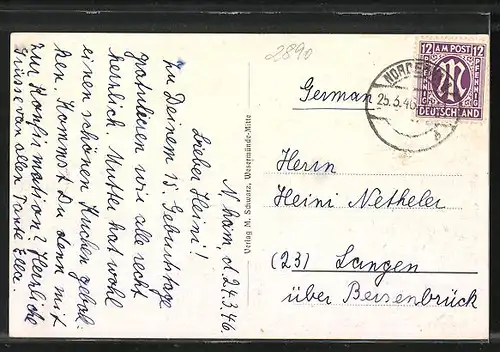 N'ham, d. 24.3.46.
Lieber Heini!
Zu Deinem 15. Geburtstage
gratulieren wir alle recht
herzlich. Mutter hat wohl
einen schönen Kuchen gebak-
ken. Kommst Du denn mit
zur Konfirmation? Herzliche
Grüsse von allen Tante Ella.
Verlag M. Schwarz, Wesermünde-Mitte
2890
12 AM POST 12
PFENNIG
DEUTSCHLAND
25.3.46
German
Herrn
Heini Netheler
(23) Langen
über Bersenbrück